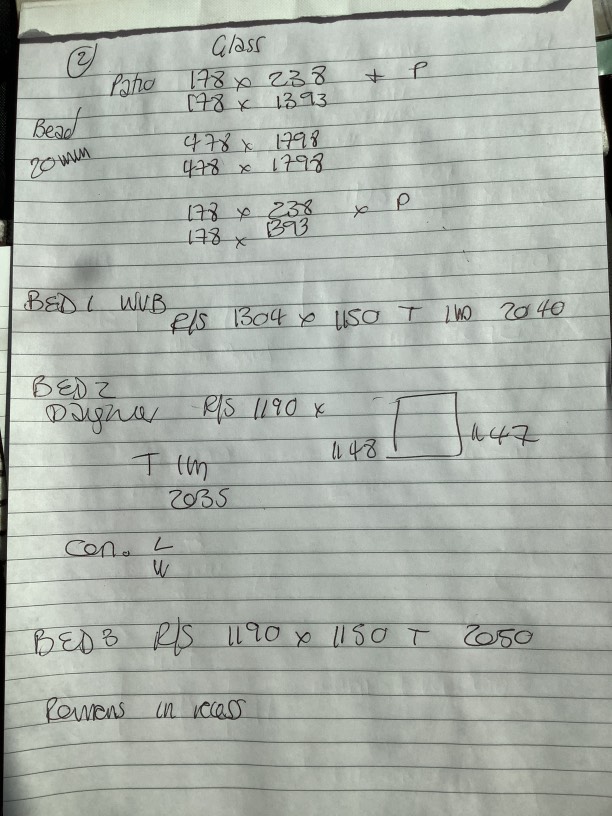 2
Glass
Patio 178 x 238 + P
178 x 1393
Bead
20mm
478 x 1798
478 x 1798
178 x 238 x P
178 x 1393
BED 1 WVB
R/S 1304 x 1150 T 1m 2040
BED 2
R/S 1190 x
1148 1147
T 1m
2035
Con. L
W
BED 3 R/S 1190 x 1150 T 2050
in recess